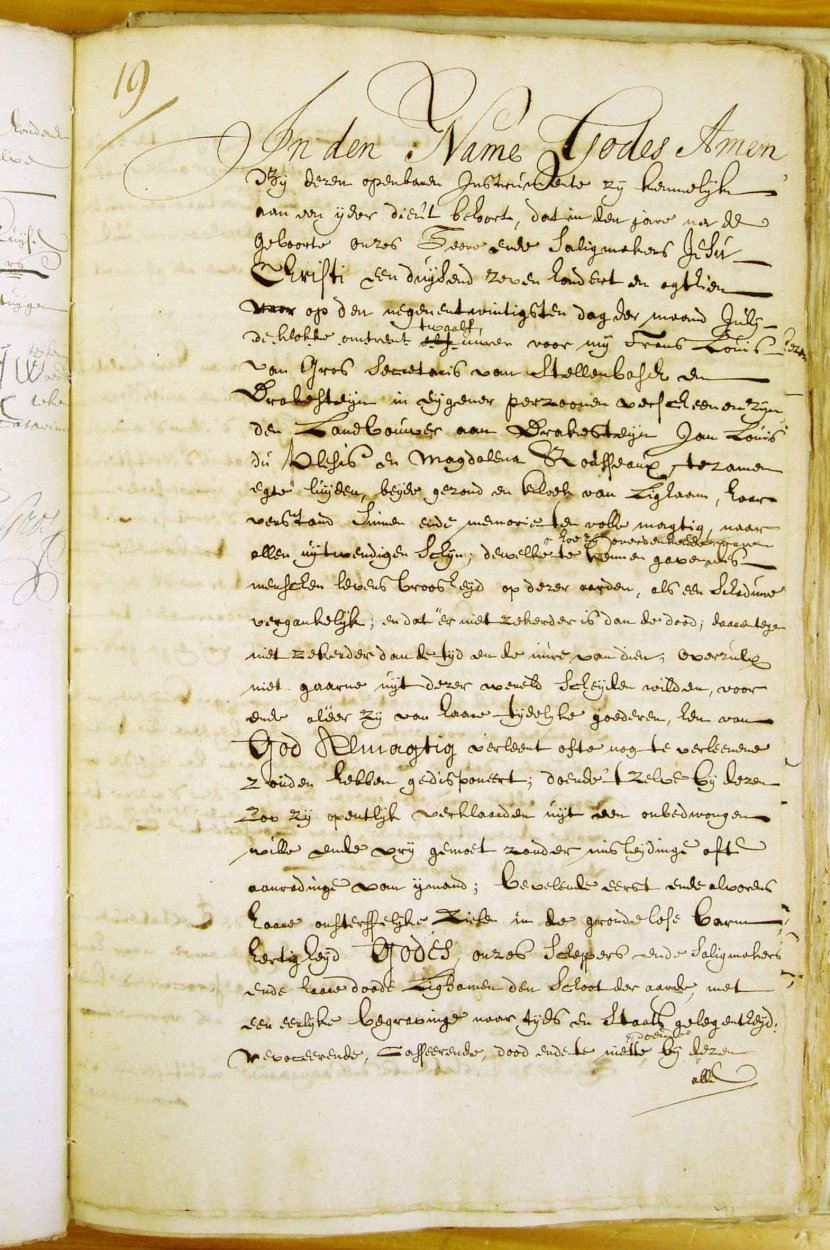 19
In den Name Godes Amen
Bij dezen openbaren Instrumente zij kennelijk
aan een ijder dieu't behoort, dat in den jare na de
geboorte onzes Heere ende Saligmakers Jesu
Christi een duijsend zeven hondert en agtien
op den negenentwintigsten dag der maand Julij
de klokke omtrent twaalf uuren voor mij Frans Louis
van Gros Secretaris van Stellenbosch en
Drakesteijn in eijgener perzoonen verscheenen zijn
den Landbouwer aan Drakesteijn Jan Louis
du Plesis en Magdalena Rousseaux, tezamen
egte luijden, beijde gezond en kloek van Lighaam, haar
verstand Sinnen ende memorie te volle magtig, naar
allen uijtwendigen Schijn; dewelke te kennen gaven des
menschen levens broosheijd op dezer aarden, als een Schaduwe
vergankelijk; en dat'er niet zekerder is dan de dood; daarentege
niet zekerder dan de tijd en de uure van dien; overzulx
niet gaarne uijt dezer wereld Scheijden wilden, voor
ende aleer zij van haare tijdelijke goederen, hen van
God Almagtig verleent ofte nog te verleenene
zouden hebben gedisponeert; doende 't zelve bij dezen
zoo zij opentlijk verklaarden uijt een onbedwongen
wille ende vrij gemoet zonder misleijdinge ofte
aanradinge van ijmand; bevelende eerst ende alvorens
haare onsterffelijke Zielen in de grondelose barm
hertigheijd Godes, onzes Scheppers ende Saligmakers
ende haare doode Lighamen den Schoot der aarde, met
een eerlijke begravinge naar tijds en Staats gelegentheijd;
revoceerende, Casseerende, dood ende te niette doende bij dezen
alle